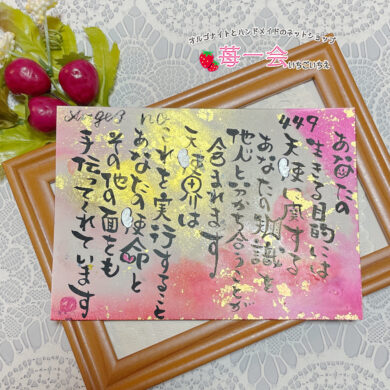 オルゴナイトとハンドメイドのネットショップ
苺一会
いちごいちえ
Angel no
449
あなたの
生きる目的には
天使に関する
あなたの知識を
他人と分かち合うことが
含まれます
天使界は
これを実行すること
あなたの使命と
その他の面をも
手伝ってくれています